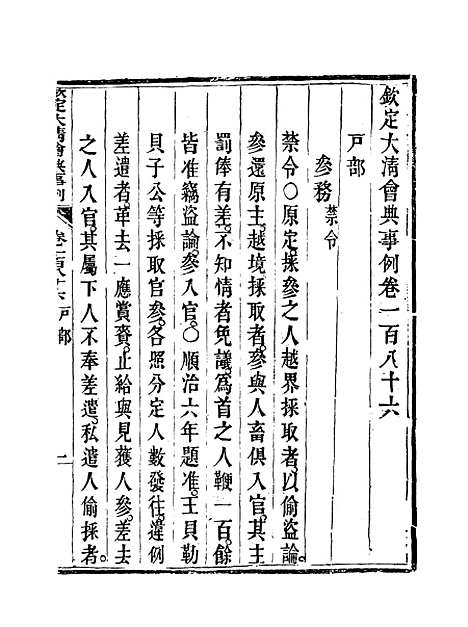 欽定大清會典事例卷一百八十六
戸部
參務禁令
禁令○原定採參之人越界採取者以偷盜論
參還原主越境採取者參與人畜俱入官其主
罰俸有差不知情者免議爲首之人鞭一百餘
皆准竊盜論參入官○順治六年題准王貝勒
貝子公等採取官參各照分定人數發往違例
差遣者革去一應賞賚止給與見獲人參差去
之人入官其屬下人不奉差遣私遣人偷採者
欽定大清會典事例 卷一百八十六 戸部 二